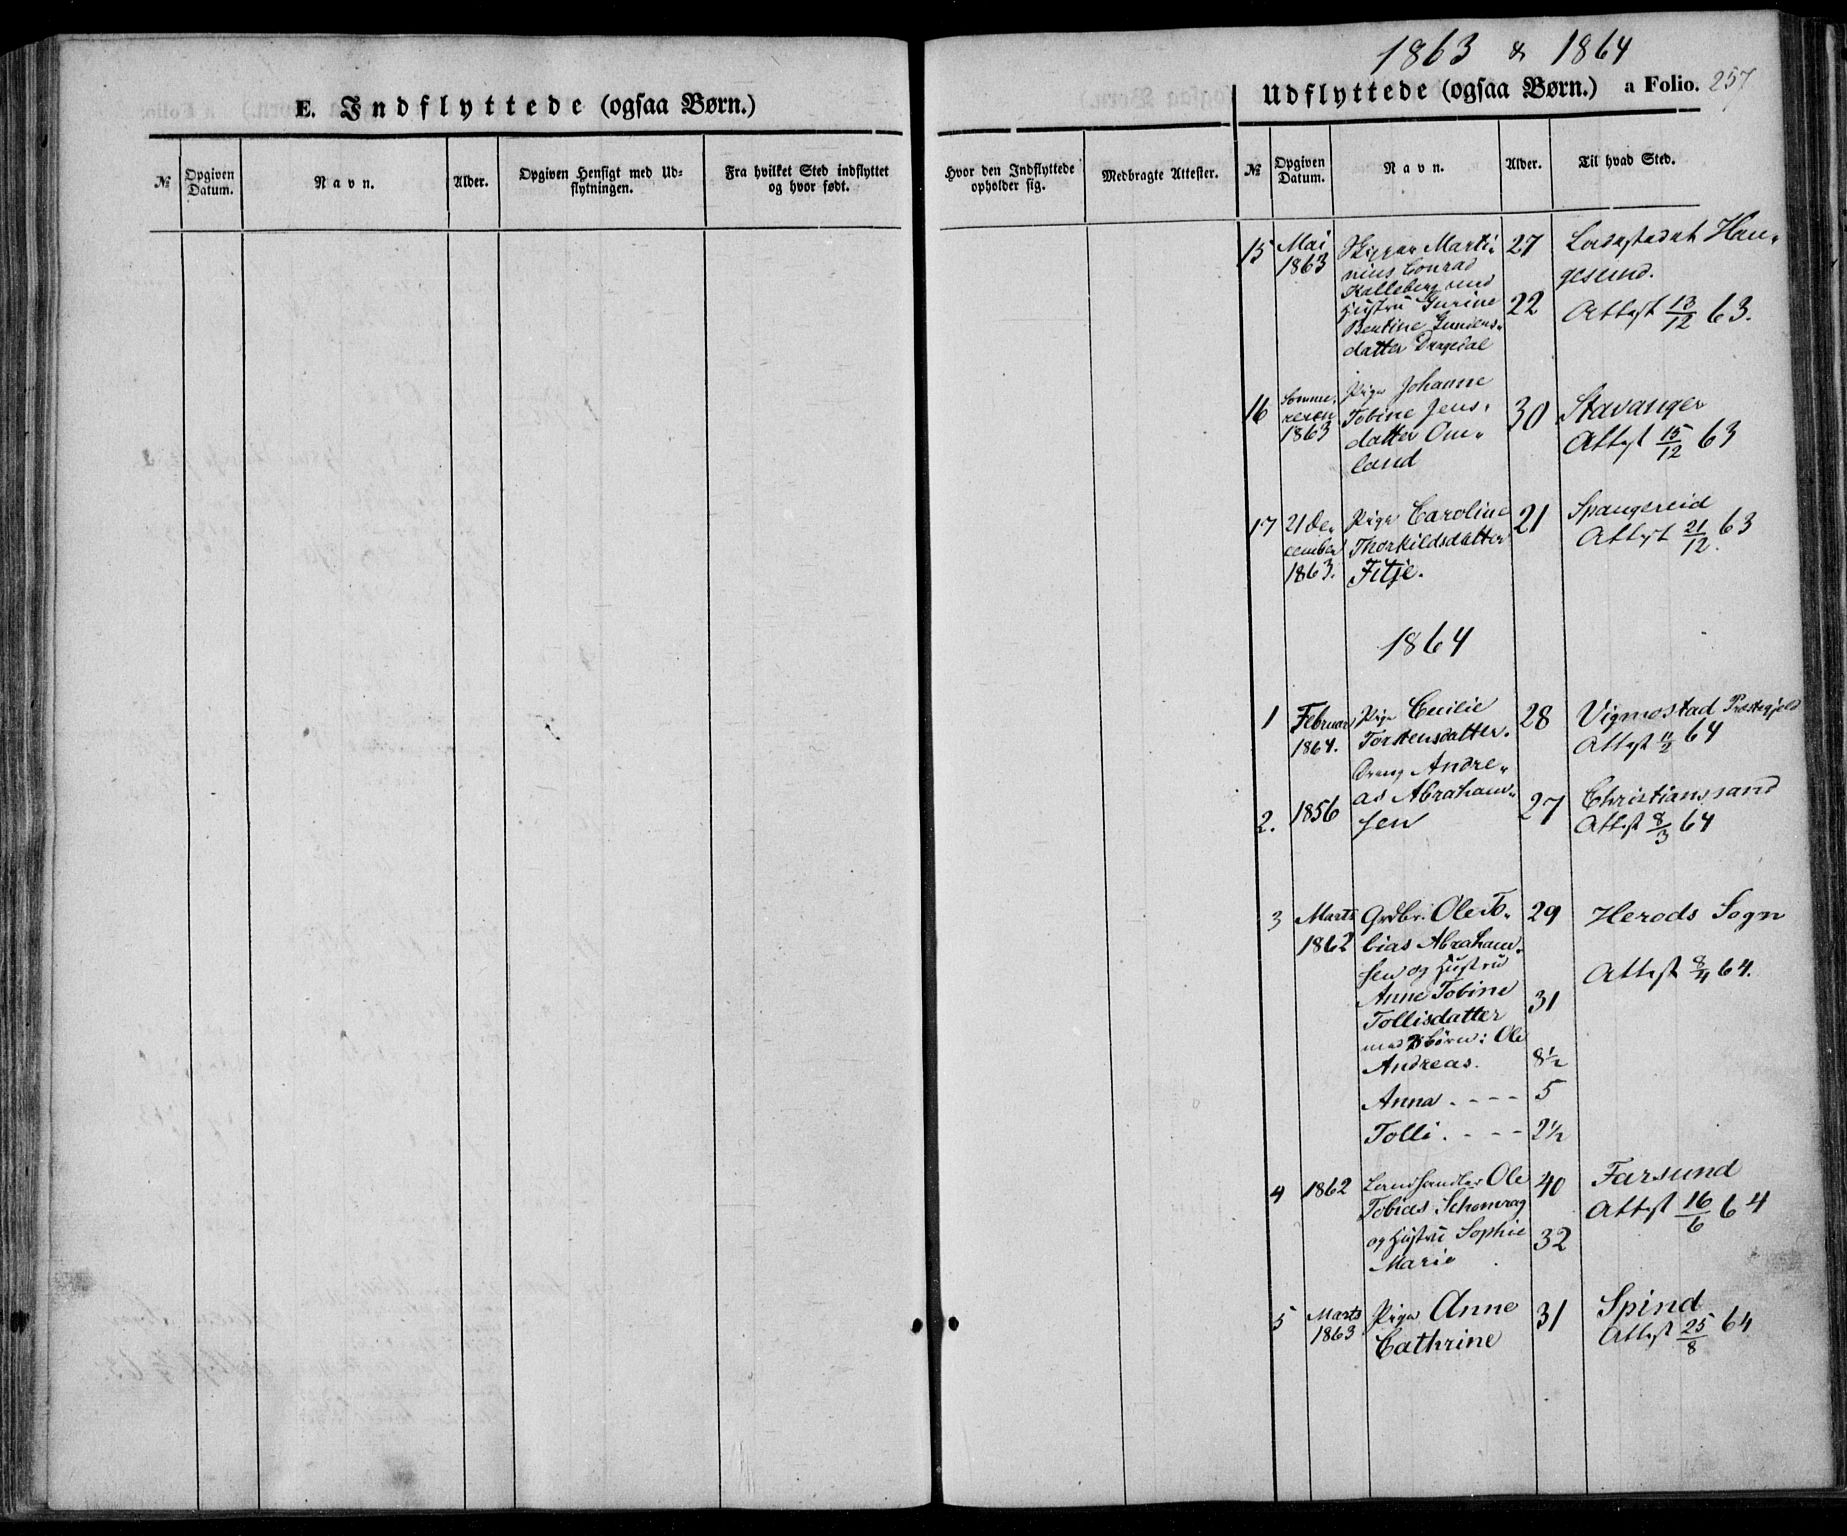 1863 & 1864
E. Indflyttede (ogsaa Børn.)
Udflyttede (ogsaa Børn.) a Folio. 257
№ Opgiven Datum. Navn. Alder. Opgiven Hensigt med Ud-
flytningen. Fra hvilket Sted indflyttet
og hvor født. Hvor den Indflyttede
opholder sig. Medbragte Attester.
№ Opgiven Datum. Navn. Alder. Til hvad Sted.
15 Mai Skipper Marti- 27 Ladestedet Hau-
1863 nius Conrad gesund.
Kalleberg med
Hustru Gurine 22 Attest 13/12 63.
Bentine Gunders-
datter Dragedal
16 Somme- Pige Johanne
reren Tobine Jens- 30 Stavanger
1863 datter Om- Attest 15/12 63
land
17 21 De- Pige Caroline 21 Spangereid
cember Thorkildsdatter Attest 21/12 63
1863. Fitje.
1864
1 Februar Pige Cecilie 28 Vigmostad Præstegjeld
1864. Torstensdatter. Attest 11/2 64
Dreng Andre-
2. 1856 as Abraham- 27 Christianssand
sen Attest 8/3 64
3 Marts Grdbr. Ole To- 29 Herods Sogn
1862 bias Abraham-
sen og Hustru Attest 8/4 64.
Anne Tobine 31
Tollisdatter
med 3 Børn: Ole
Andreas. 8½
Anna - - - - 5
Tolli. - - - 2½
4 1862 Landhandler Ole 40 Farsund
Tobias Schomrag Attest 16/6 64
og Hustru Sophie 32
Marie
5 Marts Pige Anne 31 Spind
1863 Cathrine Attest 25/8 64